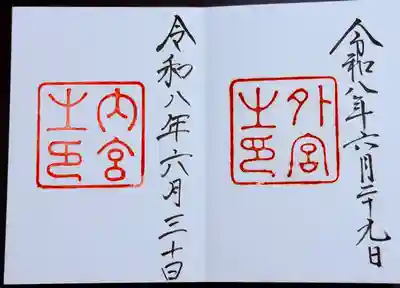 令和八年六月二十九日
外宮之印
令和八年六月三十日
内宮之印